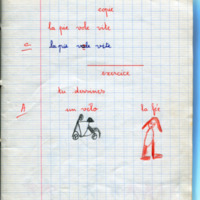 copie
la pie vole vite
la pie vole vite
exercice
tu dessines
A un vélo la fée